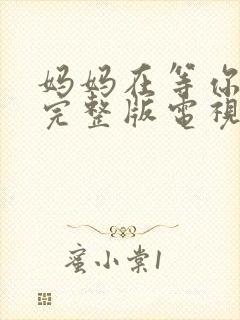 妈妈在等你
完整版電視
蜜小棠1